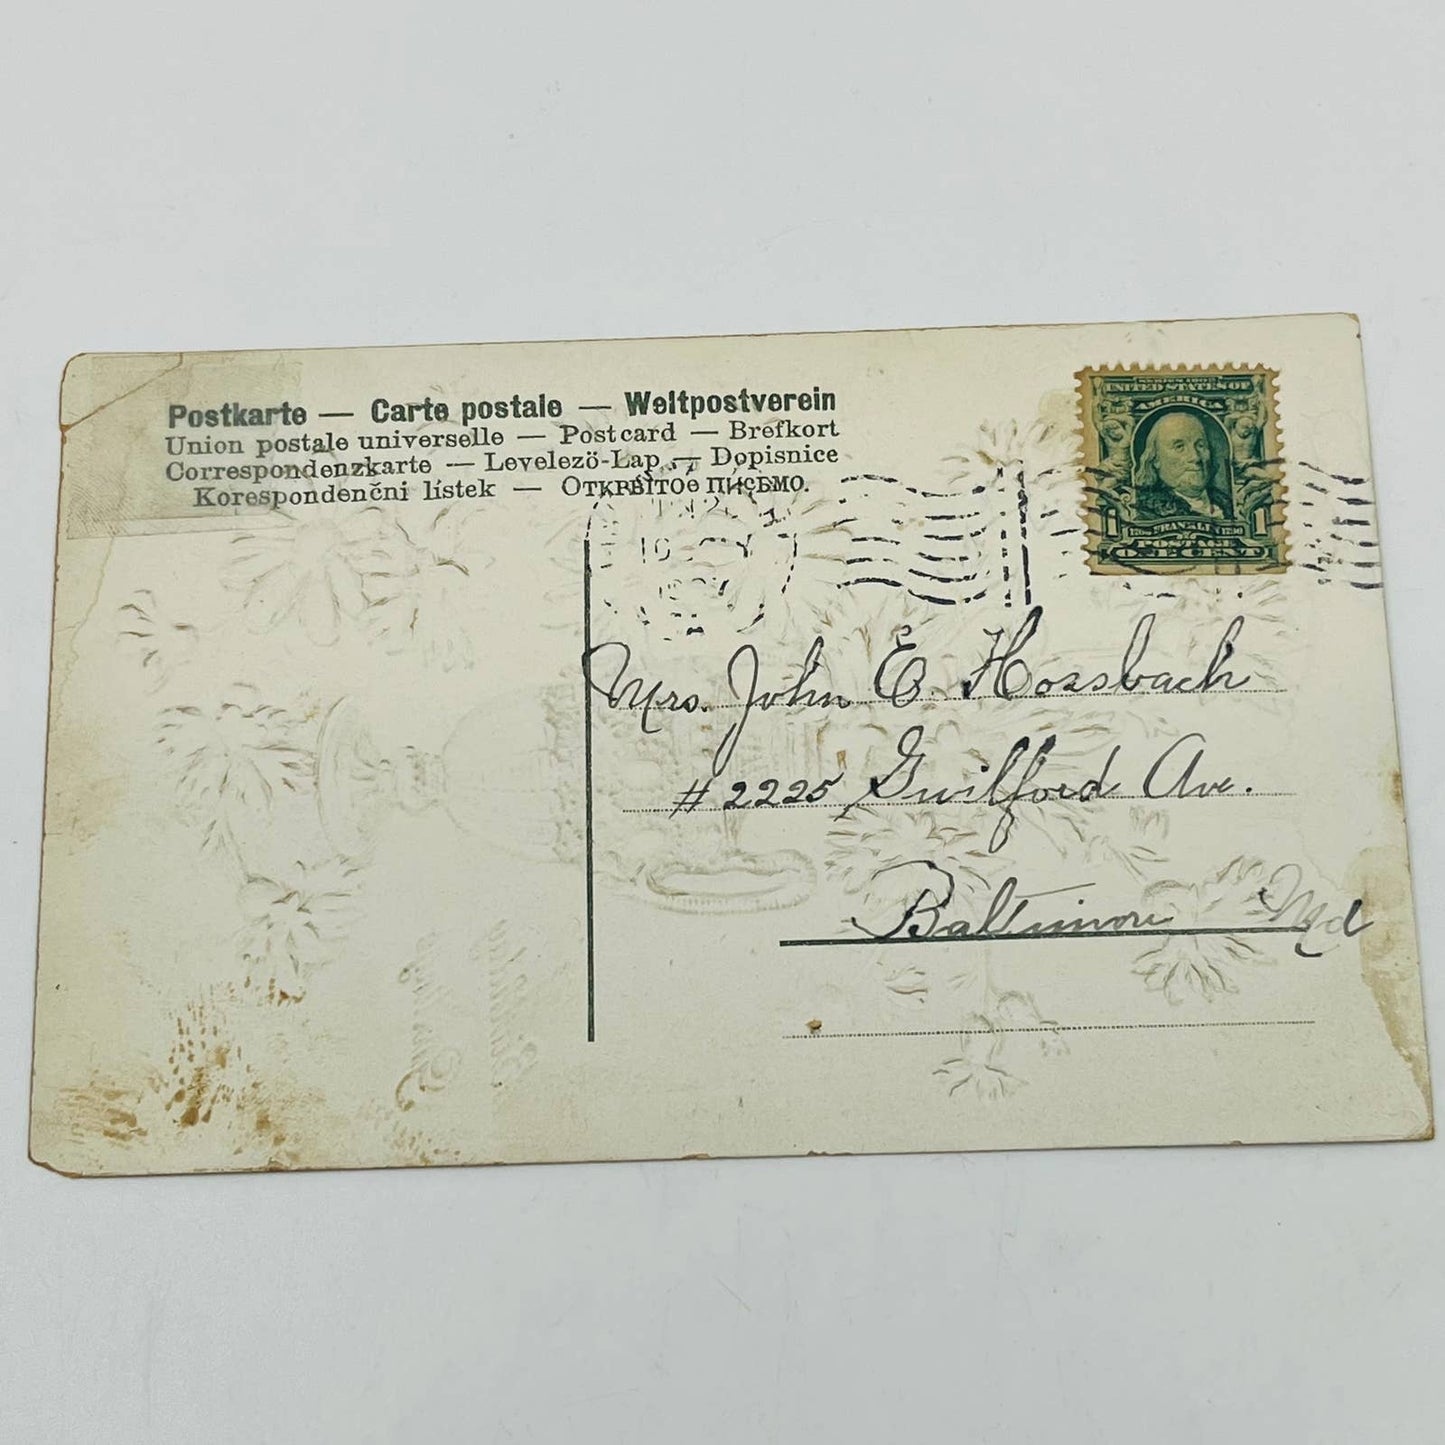 Postkarte — Carte postale — Weltpostverein
Union postale universelle — Postcard — Brefkort
Correspondenzkarte — Levelező-Lap — Dopisnice
Korespondenční lístek — Открытое письмо.
SERIES 1902
UNITED STATES OF
AMERICA
1 FRANKLIN 1
1706 1790
POSTAGE
ONE CENT
Mrs. John E. Hossbach
# 2225 Guilford Ave.
Baltimore Md